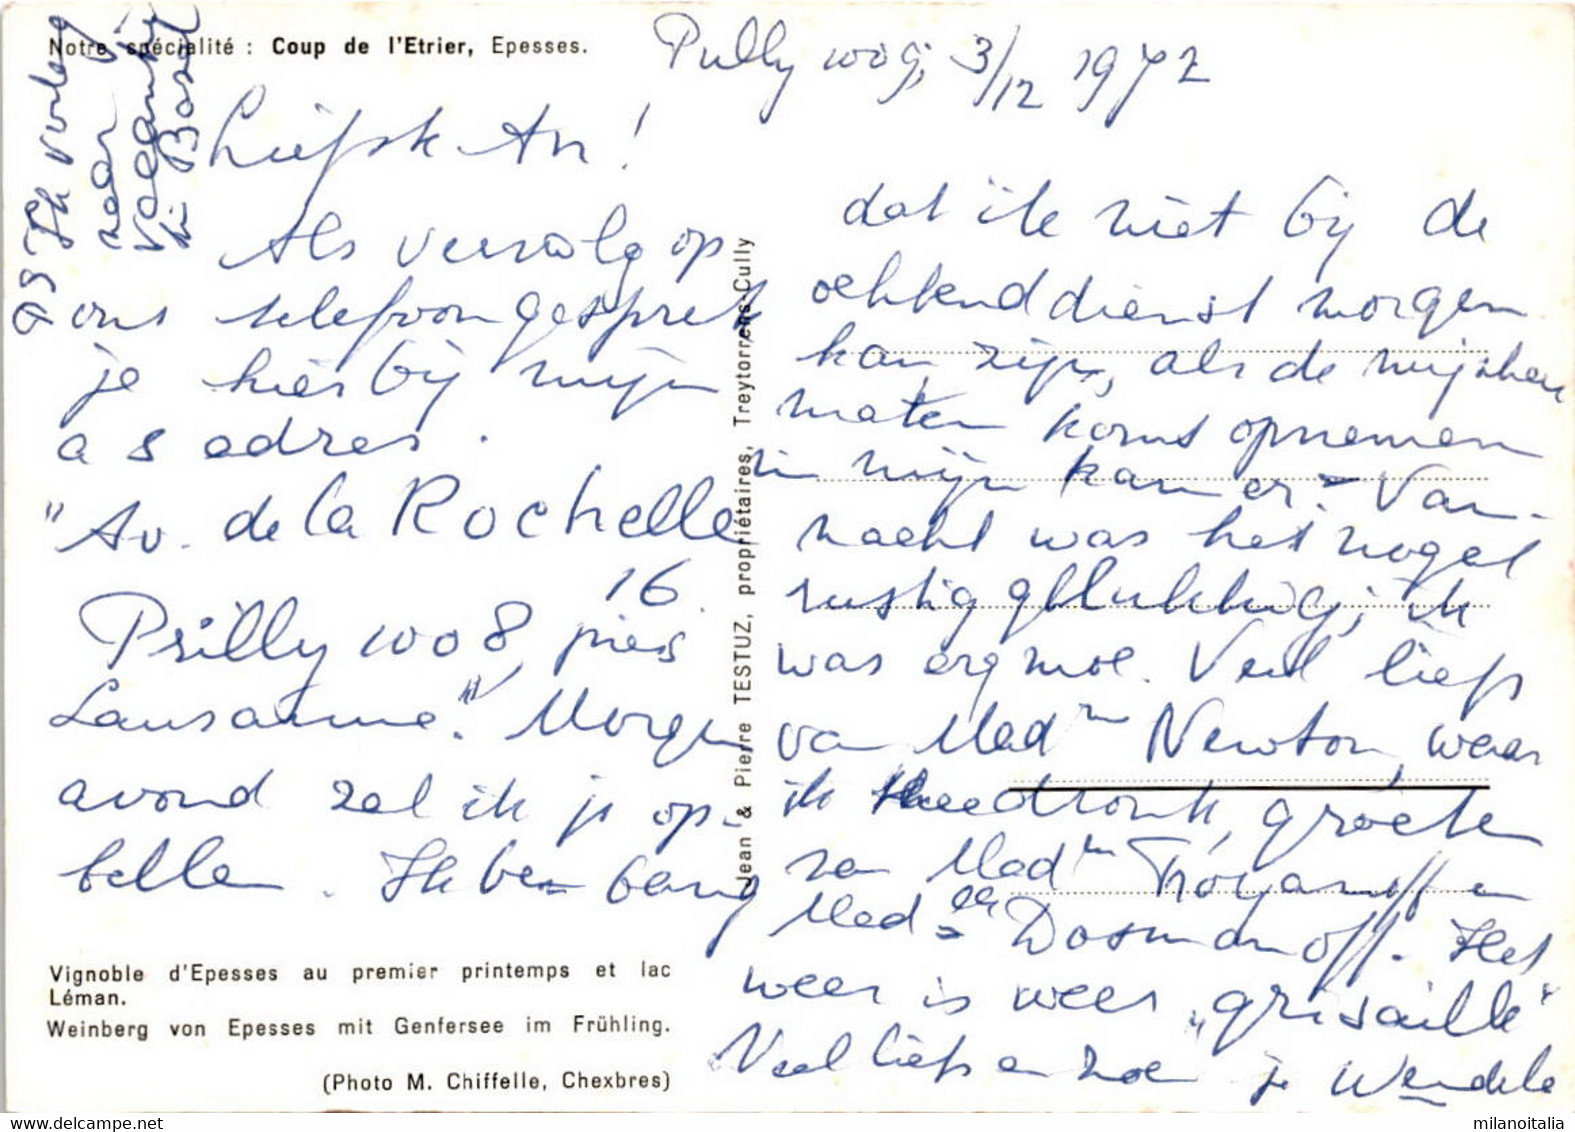 Notre spécialité : Coup de l'Etrier, Epesses.
Pully 1009, 3/12 1972
Liefste An!
Als vervolg op
ons telefoongesprek
je hierbij mijn
as adres.
"Av. de la Rochelle
16.
Prilly 1008, près
Lausanne." Morgen
avond zal ik je op-
bellen. Ik ben bang
dat ik niet bij de
ochtenddienst morgen
kan zijn, als de
maten komt opnemen
in mijn kamer. Van-
nacht was het nogal
rustig gelukkig; ik
was erg moe. Veel liefs
van Mad^m Newton, waar
ik theedronk, groeten
van Mad^m Troyanoff en
Mad Dosmanoff. Het
weer is weer "grisaille"
Veel liefs en zoen je Wendela
PS Ik verlang
naar
in Basel
Jean & Pierre TESTUZ, propriétaires, Treytorrens-Cully
Vignoble d'Epesses au premier printemps et lac
Léman.
Weinberg von Epesses mit Genfersee im Frühling.
(Photo M. Chiffelle, Chexbres)
milanoitalia